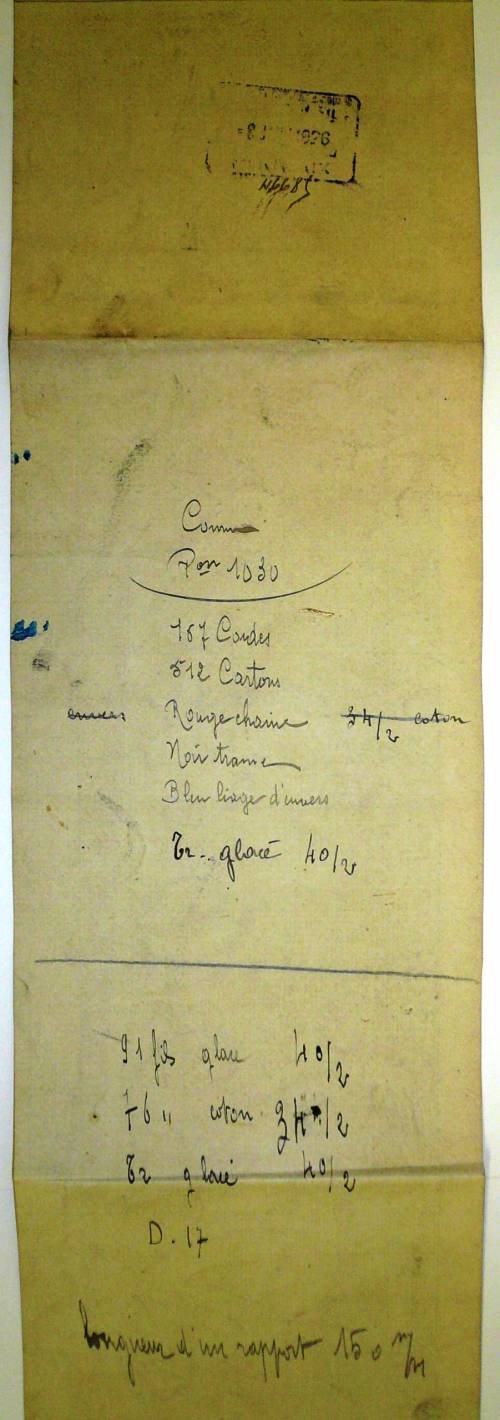 Comm
Pon 1030
167 Cordes
512 Cartons
envers Rouge chaine 34/2 coton
Noir trame
Bleu liage d'envers
Tr. glacé 40/2
91 fils glacé 40/2
76 " coton 34/2
Tr glacé 40/2
D. 17
longueur d'un rapport 150 m/m